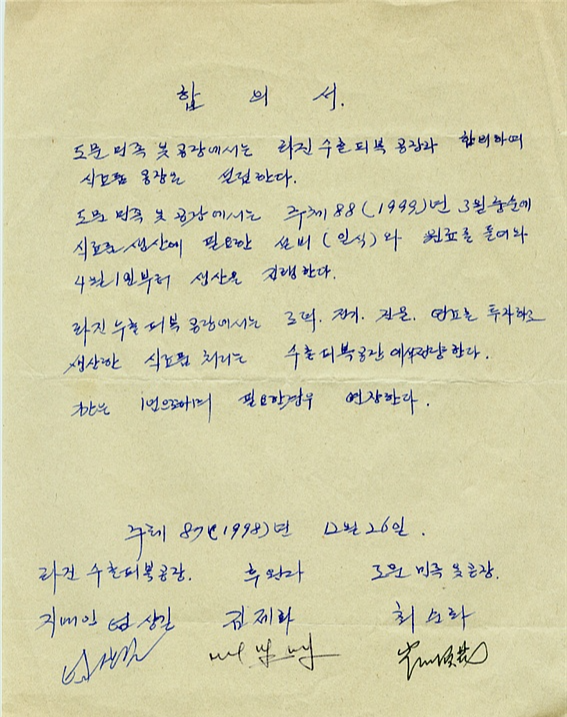 합 의 서.
도문 민족 옷 공장에서는 라진 수출피복 공장과 합의하여
식료품 공장을 설립한다.
도문 민족 옷 공장에서는 주체 88(1999)년 3월 중순에
식료품 생산에 필요한 설비(일식)와 원료를 들여와
4월1일부터 생산을 진행한다.
라진 수출피복 공장에서는 로력. 전기. 건물. 연료를 투자하고
생산한 식료품 처리는 수출피복공장에서 한다.
기간은 1년으로하며 필요한경우 연장한다.
주체 87(1998)년 12월 26일.
라진 수출피복공장. 후원자 도문 민족 옷공장.
지배인 엄상길 김제화 최